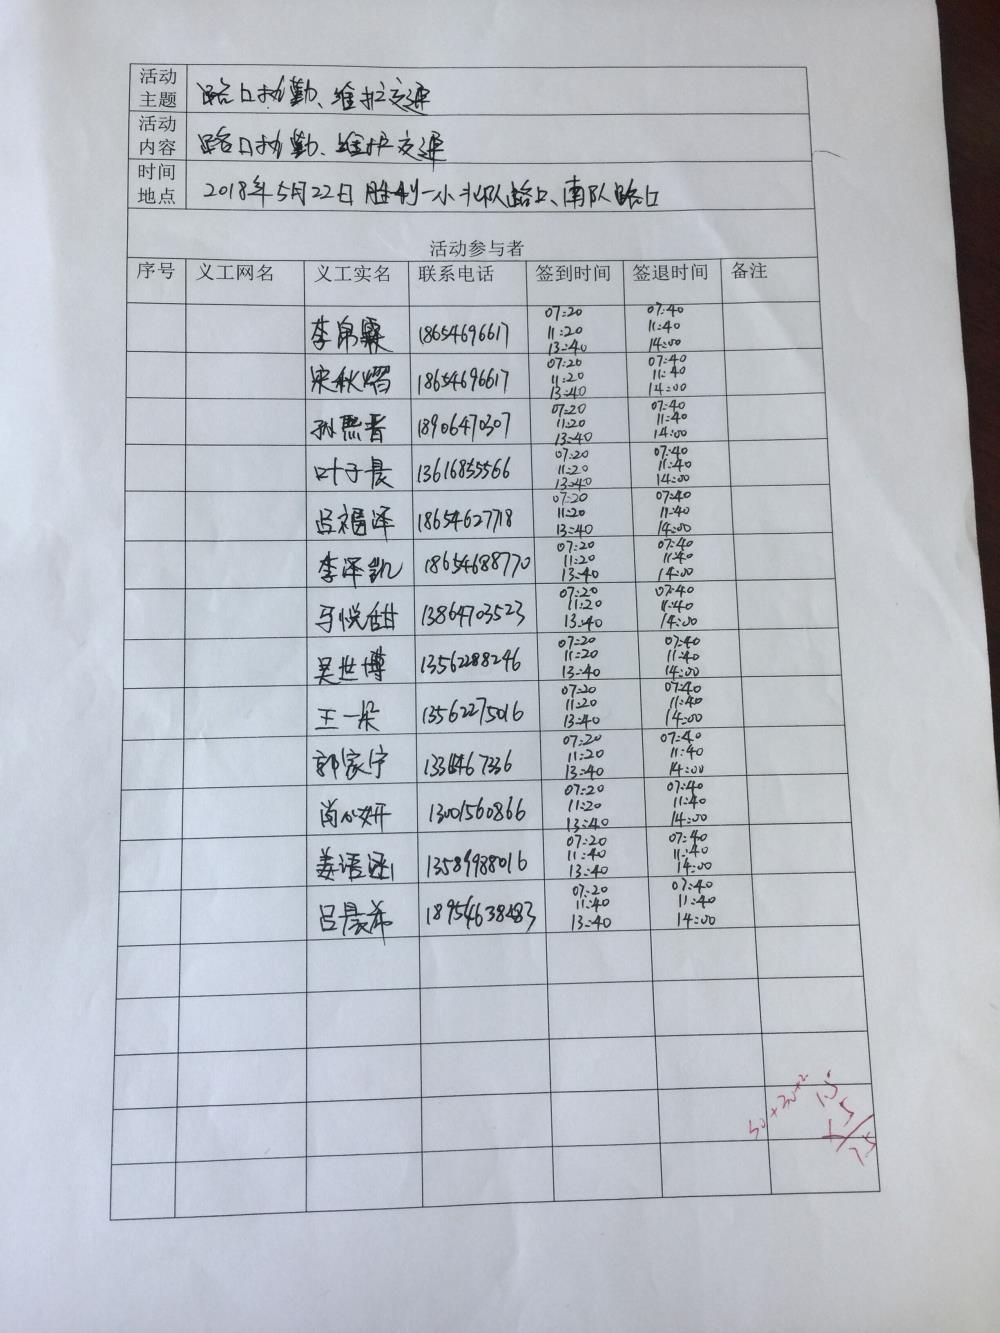 活动
主题
路口执勤、维护交通
活动
内容
路口执勤、维护交通
时间
地点
2018年5月22日 胜利一小北队路口、南队路口
活动参与者
序号 义工网名 义工实名 联系电话 签到时间 签退时间 备注
07:20 07:40
李帛霖 18654696617 11:20 11:40
13:40 14:00
07:20 07:40
宋秋熠 18654696617 11:20 11:40
13:40 14:00
07:20 07:40
孙熙晋 18906470307 11:20 11:40
13:40 14:00
07:20 07:40
叶子晨 13616855566 11:20 11:40
13:40 14:00
07:20 07:40
吕福泽 18654627718 11:20 11:40
13:40 14:00
07:20 07:40
李泽凯 18654688770 11:20 11:40
13:40 14:00
07:20 07:40
马悦甜 13864703523 11:20 11:40
13:40 14:00
07:20 07:40
吴世博 13562288246 11:20 11:40
13:40 14:00
07:20 07:40
王一朵 13562275016 11:20 11:40
13:40 14:00
07:20 07:40
郭家宁 11:20 11:40
13:40 14:00
07:20 07:40
尚心妍 13001560866 11:20 11:40
13:40 14:00
07:20 07:40
姜语涵 13589988016 11:40 11:40
13:40 14:00
07:20 07:40
吕晨希 11:40 11:40
13:40 14:00
1.5
5
7.5